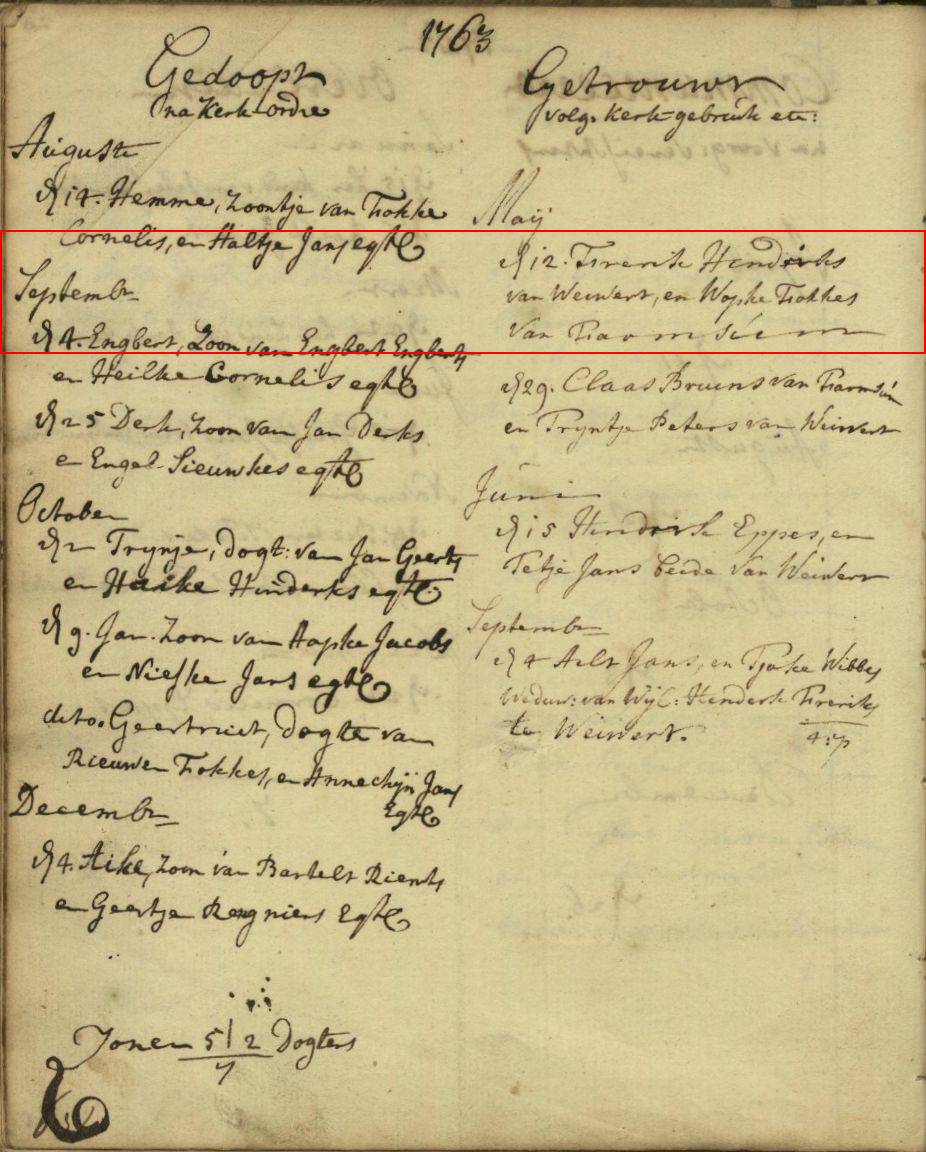 1763
Gedoopt
na Kerk-ordre
Auguste
d 14. Hemme, Zoontje van Fokke
Cornelis, en Haltje Jans egtel
Septembr
d 4. Engbert, Zoon van Engbert Engberts
en Heilke Cornelis egtel
d 25 Derk, Zoon van Jan Derks
en Engel Sieuwkes egtel
October
d 2 Trynje, dogt: van Jan Geerts
en Hauke Hinderks egtel
d 9. Jan. Zoon van Aapke Jacobs
en Nieske Jans egtel
dito. Geertruit, dogte van
Rieuwen Fokkes, en Annechijn Jans
Egtel
Decembr
d 4. Aike, Zoon van Bartelt Rients
en Geertje Rengniers Egtel
Zonen 5 | 2 Dogters
7
Getrouwt
volg. Kerk-gebruik etc:
Maij
d 12. Frerik Hendriks
van Weiwert, en Wopke Fokkes
Van Farmsum
d 29. Claas Bruins van Farmsum
en Tryntje Peters van Weiwert
Juni
d 15 Hindrik Eppes, en
Tetje Jans beide van Weiwert
Septembr
d 4 Ailt Jans, en Tjake Wibbes
Weduw: van Wijl: Henderk Freriks
te Weiwert.
4:p